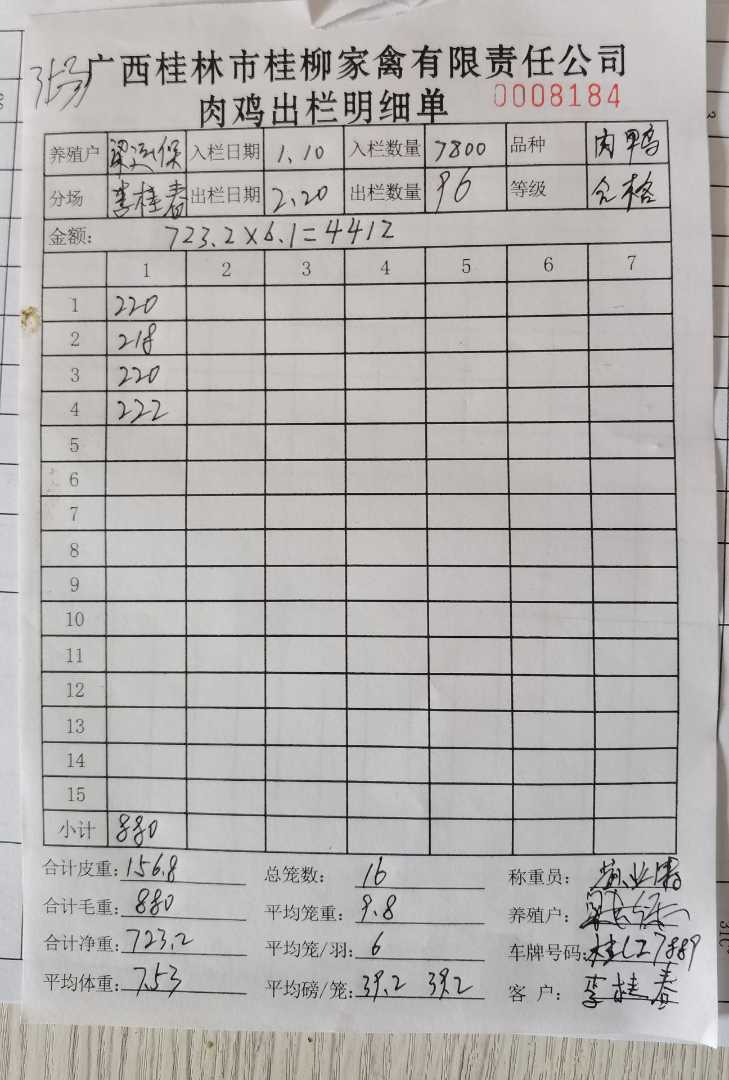 广西桂林市桂柳家禽有限责任公司
肉鸡出栏明细单 0008184
养殖户 梁 保 入栏日期 1.10 入栏数量 7800 品种 肉鸭
分场 李桂春 出栏日期 2.20 出栏数量 96 等级 合格
金额: 723.2×6.1=4412
1 2 3 4 5 6 7
1 220
2 218
3 220
4 222
5
6
7
8
9
10
11
12
13
14
15
小计 880
合计皮重: 156.8 总笼数: 16 称重员:
合计毛重: 880 平均笼重: 9.8 养殖户:
合计净重: 723.2 平均笼/羽: 6 车牌号码: 桂CZ7889
平均体重: 7.53 平均磅/笼: 39.2 39.2 客 户: 李桂春